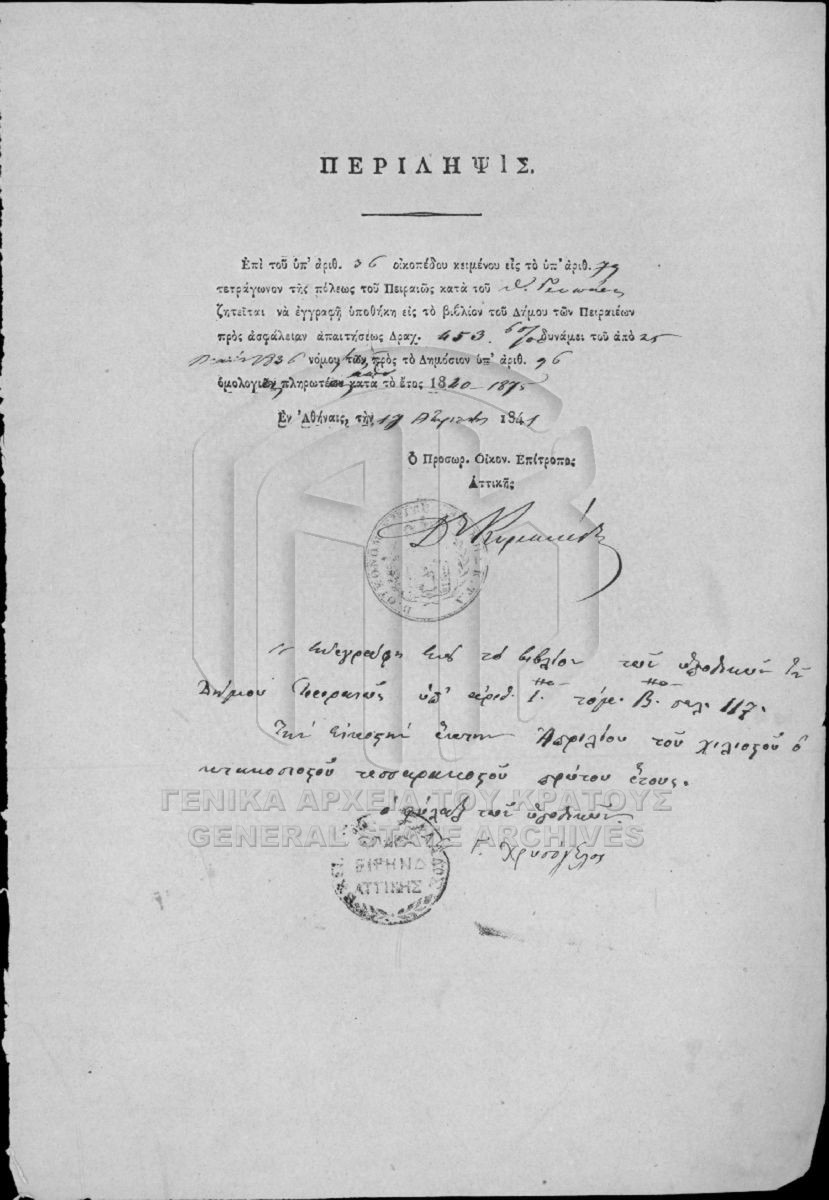 ΠΕΡΙΛΗΨΙΣ.
Ἐπὶ τοῦ ὑπ' ἀριθ. 36 οἰκοπέδου κειμένου εἰς τὸ ὑπ' ἀριθ. 79
τετράγωνον τῆς πόλεως τοῦ Πειραιῶς κατὰ τοῦ
ζητεῖται νὰ ἐγγραφῇ ὑποθήκη εἰς τὸ βιβλίον τοῦ Δήμου τῶν Πειραιέων
πρὸς ἀσφάλειαν ἀπαιτήσεως Δραχ. 453. 60/70 δυνάμει τοῦ ἀπὸ 25
1836 νόμου τῶν πρὸς τὸ Δημόσιον ὑπ' ἀριθ. 96
ὁμολογιῶν πληρωτέων κατὰ τὸ ἔτος 1840 - 1875
Ἐν Ἀθήναις, τὴν 17 Ἀπριλίου 1841
Ὁ Προσωρ. Οἰκον. Ἐπίτροπος
Ἀττικῆς
Ἐνεγράφη εἰς τὸ βιβλίον τῶν ὑποθηκῶν τοῦ
Δήμου Πειραιῶς ὑπ' ἀριθ. 1. τόμ. Β. σελ. 117.
Τὴν εἰκοστὴν Ἀπριλίου τοῦ χιλιοστοῦ ὀ
κτακοσιοστοῦ τεσσαρακοστοῦ πρώτου ἔτους.
Ὁ φύλαξ τῶν ὑποθηκῶν
Γ. Χρυσόγελος
ΕΙΡΗΝΟΔ
ΑΤΤΙΚΗΣ
ΓΕΝΙΚΑ ΑΡΧΕΙΑ ΤΟΥ ΚΡΑΤΟΥΣ
GENERAL STATE ARCHIVES